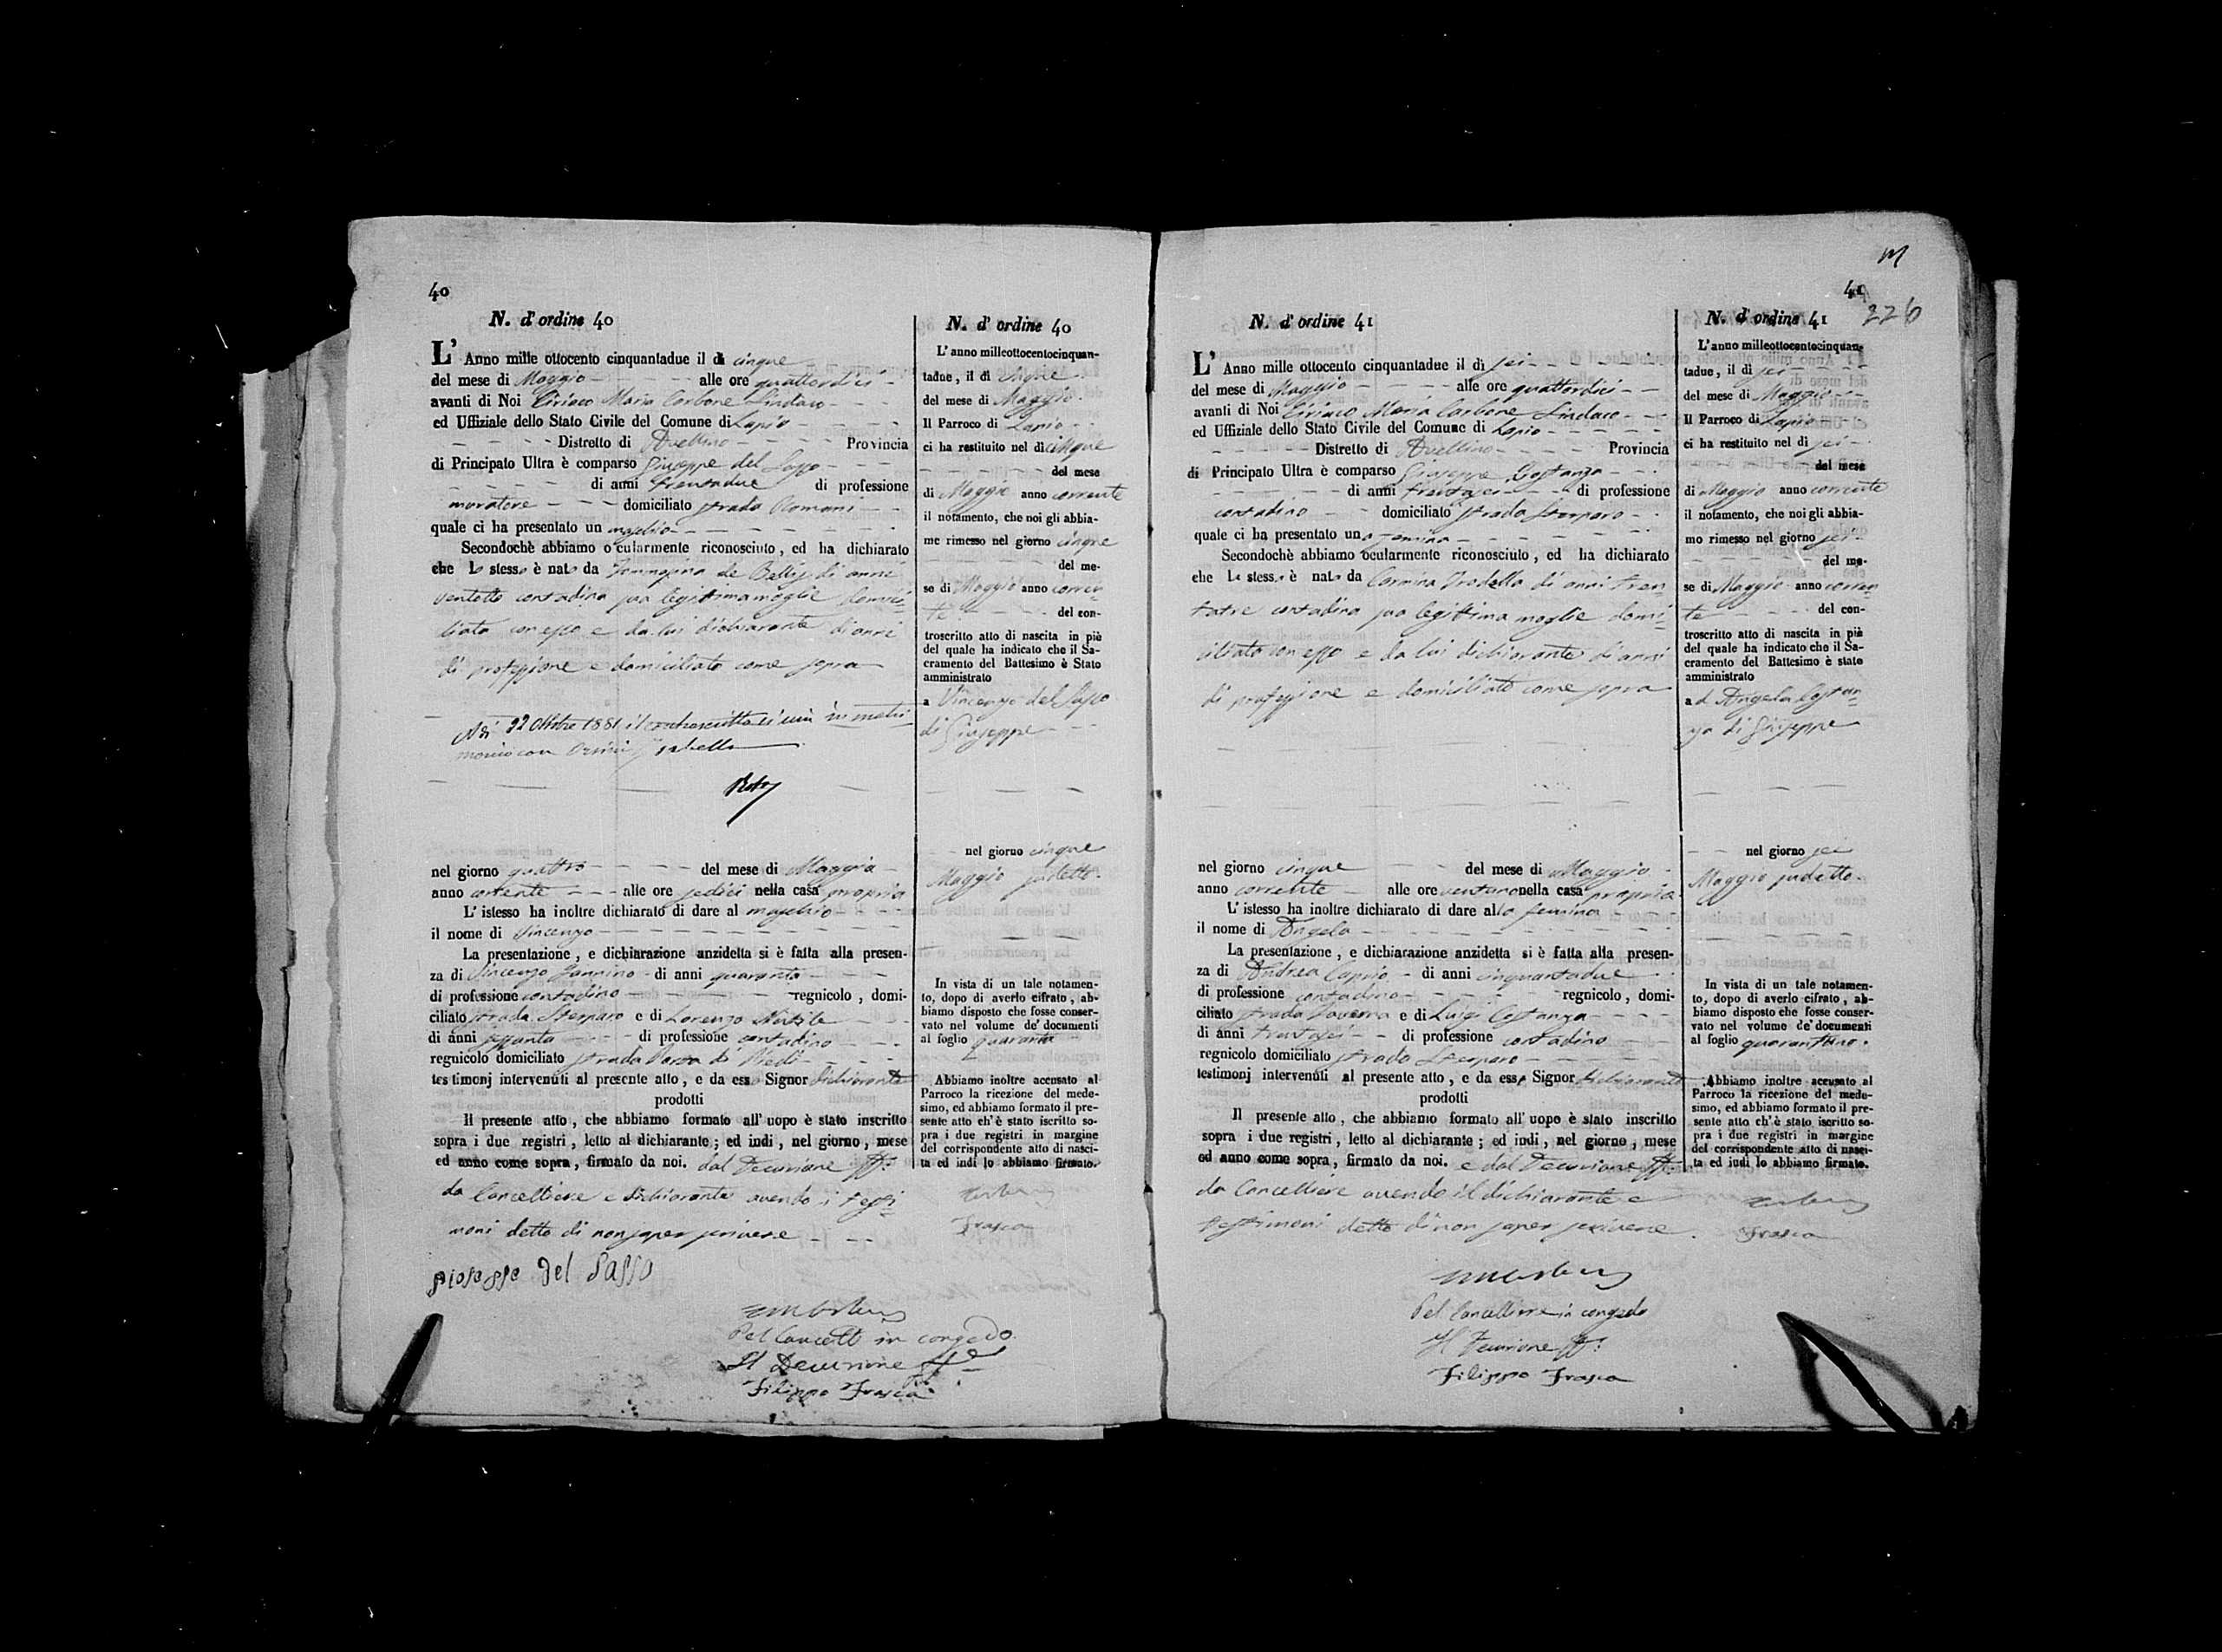 40
N. d'ordine 40
L' Anno mille ottocento cinquantadue il dì cinque
del mese di Maggio alle ore quattordici
avanti di Noi Ciriaco Maria Carbone Sindaco
ed Uffiziale dello Stato Civile del Comune di Lapio
Distretto di Avellino Provincia
di Principato Ultra è comparso Giuseppe del Sasso
di anni trentadue di professione
muratore domiciliato strada Romani
quale ci ha presentato un maschio
Secondochè abbiamo ocularmente riconosciuto, ed ha dichiarato
che lo stesso è nato da de Bellis di anni
ventotto contadina sua legittima moglie domici-
liata con esso e da lui dichiarante di anni
di professione e domiciliato come sopra
Addì 22 Ottobre 1881 il controscritto si unì in matri-
monio con Isabella
nel giorno quattro del mese di Maggio
anno corrente alle ore sedici nella casa propria
L' istesso ha inoltre dichiarato di dare al maschio
il nome di Vincenzo
La presentazione, e dichiarazione anzidetta si è fatta alla presen-
za di Vincenzo Jannino di anni quaranta
di professione contadino regnicolo, domi-
ciliato strada Sterparo e di Lorenzo
di anni sessanta di professione contadino
regnicolo domiciliato strada di
testimonj intervenuti al presente atto, e da esso Signor dichiarante
prodotti
Il presente atto, che abbiamo formato all' uopo è stato inscritto
sopra i due registri, letto al dichiarante; ed indi, nel giorno, mese
ed anno come sopra, firmato da noi. dal Decurione ff:
da Cancelliere e dichiarante avendo i testi-
moni detto di non saper scrivere
giosesse del Sasso
Pel Cancell in congedo
Il Decurione ff
Filippo Frasca
N. d' ordine 40
L' anno milleottocentocinquan-
tadue, il dì cinque
del mese di Maggio
Il Parroco di Lapio
ci ha restituito nel dì cinque
del mese
di Maggio anno corrente
il notamento, che noi gli abbia-
me rimesso nel giorno cinque
del me-
se di Maggio anno corren-
te del con-
troscritto atto di nascita in piè
del quale ha indicato che il Sa-
cramento del Battesimo è Stato
amministrato
a Vincenzo del Sasso
di Giuseppe
nel giorno cinque
Maggio sudetto.
In vista di un tale notamen-
to, dopo di averlo cifrato, ab-
biamo disposto che fosse conser-
vato nel volume de' documenti
al foglio quaranta
Abbiamo inoltre accusato al
Parroco la ricezione del mede-
simo, ed abbiamo formato il pre-
sente atto ch' è stato iscritto so-
pra i due registri in margine
del corrispondente atto di nasci-
ta ed indi lo abbiamo firmato.
Frasca
41
226
N. d' ordine 41
L' Anno mille ottocento cinquantadue il dì sei
del mese di Maggio alle ore quattordici
avanti di Noi Ciriaco Maria Carbone Sindaco
ed Uffiziale dello Stato Civile del Comune di Lapio
Distretto di Avellino Provincia
di Principato Ultra è comparso Giuseppe Costanza
di anni trentasei di professione
contadino domiciliato strada Sterparo
quale ci ha presentato una femina
Secondochè abbiamo ocularmente riconosciuto, ed ha dichiarato
che la stessa è nata da Carmina di anni tren-
tatre contadina sua legittima moglie domi-
ciliata con esso e da lui dichiarante di anni
di professione e domiciliato come sopra
nel giorno cinque del mese di Maggio
anno corrente alle ore ventuno nella casa propria
L' istesso ha inoltre dichiarato di dare alla femina
il nome di Angela
La presentazione, e dichiarazione anzidetta si è fatta alla presen-
za di Andrea Caprio di anni cinquantadue
di professione contadino regnicolo, domi-
ciliato strada e di Luigi Costanza
di anni trentasei di professione contadino
regnicolo domiciliato strada Sterparo
testimonj intervenuti al presente atto, e da esso Signor dichiarante
prodotti
Il presente atto, che abbiamo formato all' uopo è stato inscritto
sopra i due registri, letto al dichiarante; ed indi, nel giorno, mese
ed anno come sopra, firmato da noi. e dal Decurione ff:
da Cancelliere avendo il dichiarante e
testimoni detto di non saper scrivere.
Pel Cancelliere in congedo
Il Decurione ff:
Filippo Frasca
N. d' ordine 41
L' anno milleottocentocinquan-
tadue, il dì sei
del mese di Maggio
Il Parroco di Lapio
ci ha restituito nel dì sei
del mese
di Maggio anno corrente
il notamento, che noi gli abbia-
mo rimesso nel giorno sei
del me-
se di Maggio anno corren-
te del con-
troscritto atto di nascita in piè
del quale ha indicato che il Sa-
cramento del Battesimo è stato
amministrato
ad Angela Costan-
za di Giuseppe
nel giorno sei
Maggio sudetto.
In vista di un tale notamen-
to, dopo di averlo cifrato, ab-
biamo disposto che fosse conser-
vato nel volume de' documenti
al foglio quarantuno.
Abbiamo inoltre accusato al
Parroco la ricezione del mede-
simo, ed abbiamo formato il pre-
sente atto ch' è stato iscritto so-
pra i due registri in margine
del corrispondente atto di nasci-
ta ed indi lo abbiamo firmato.
Frasca